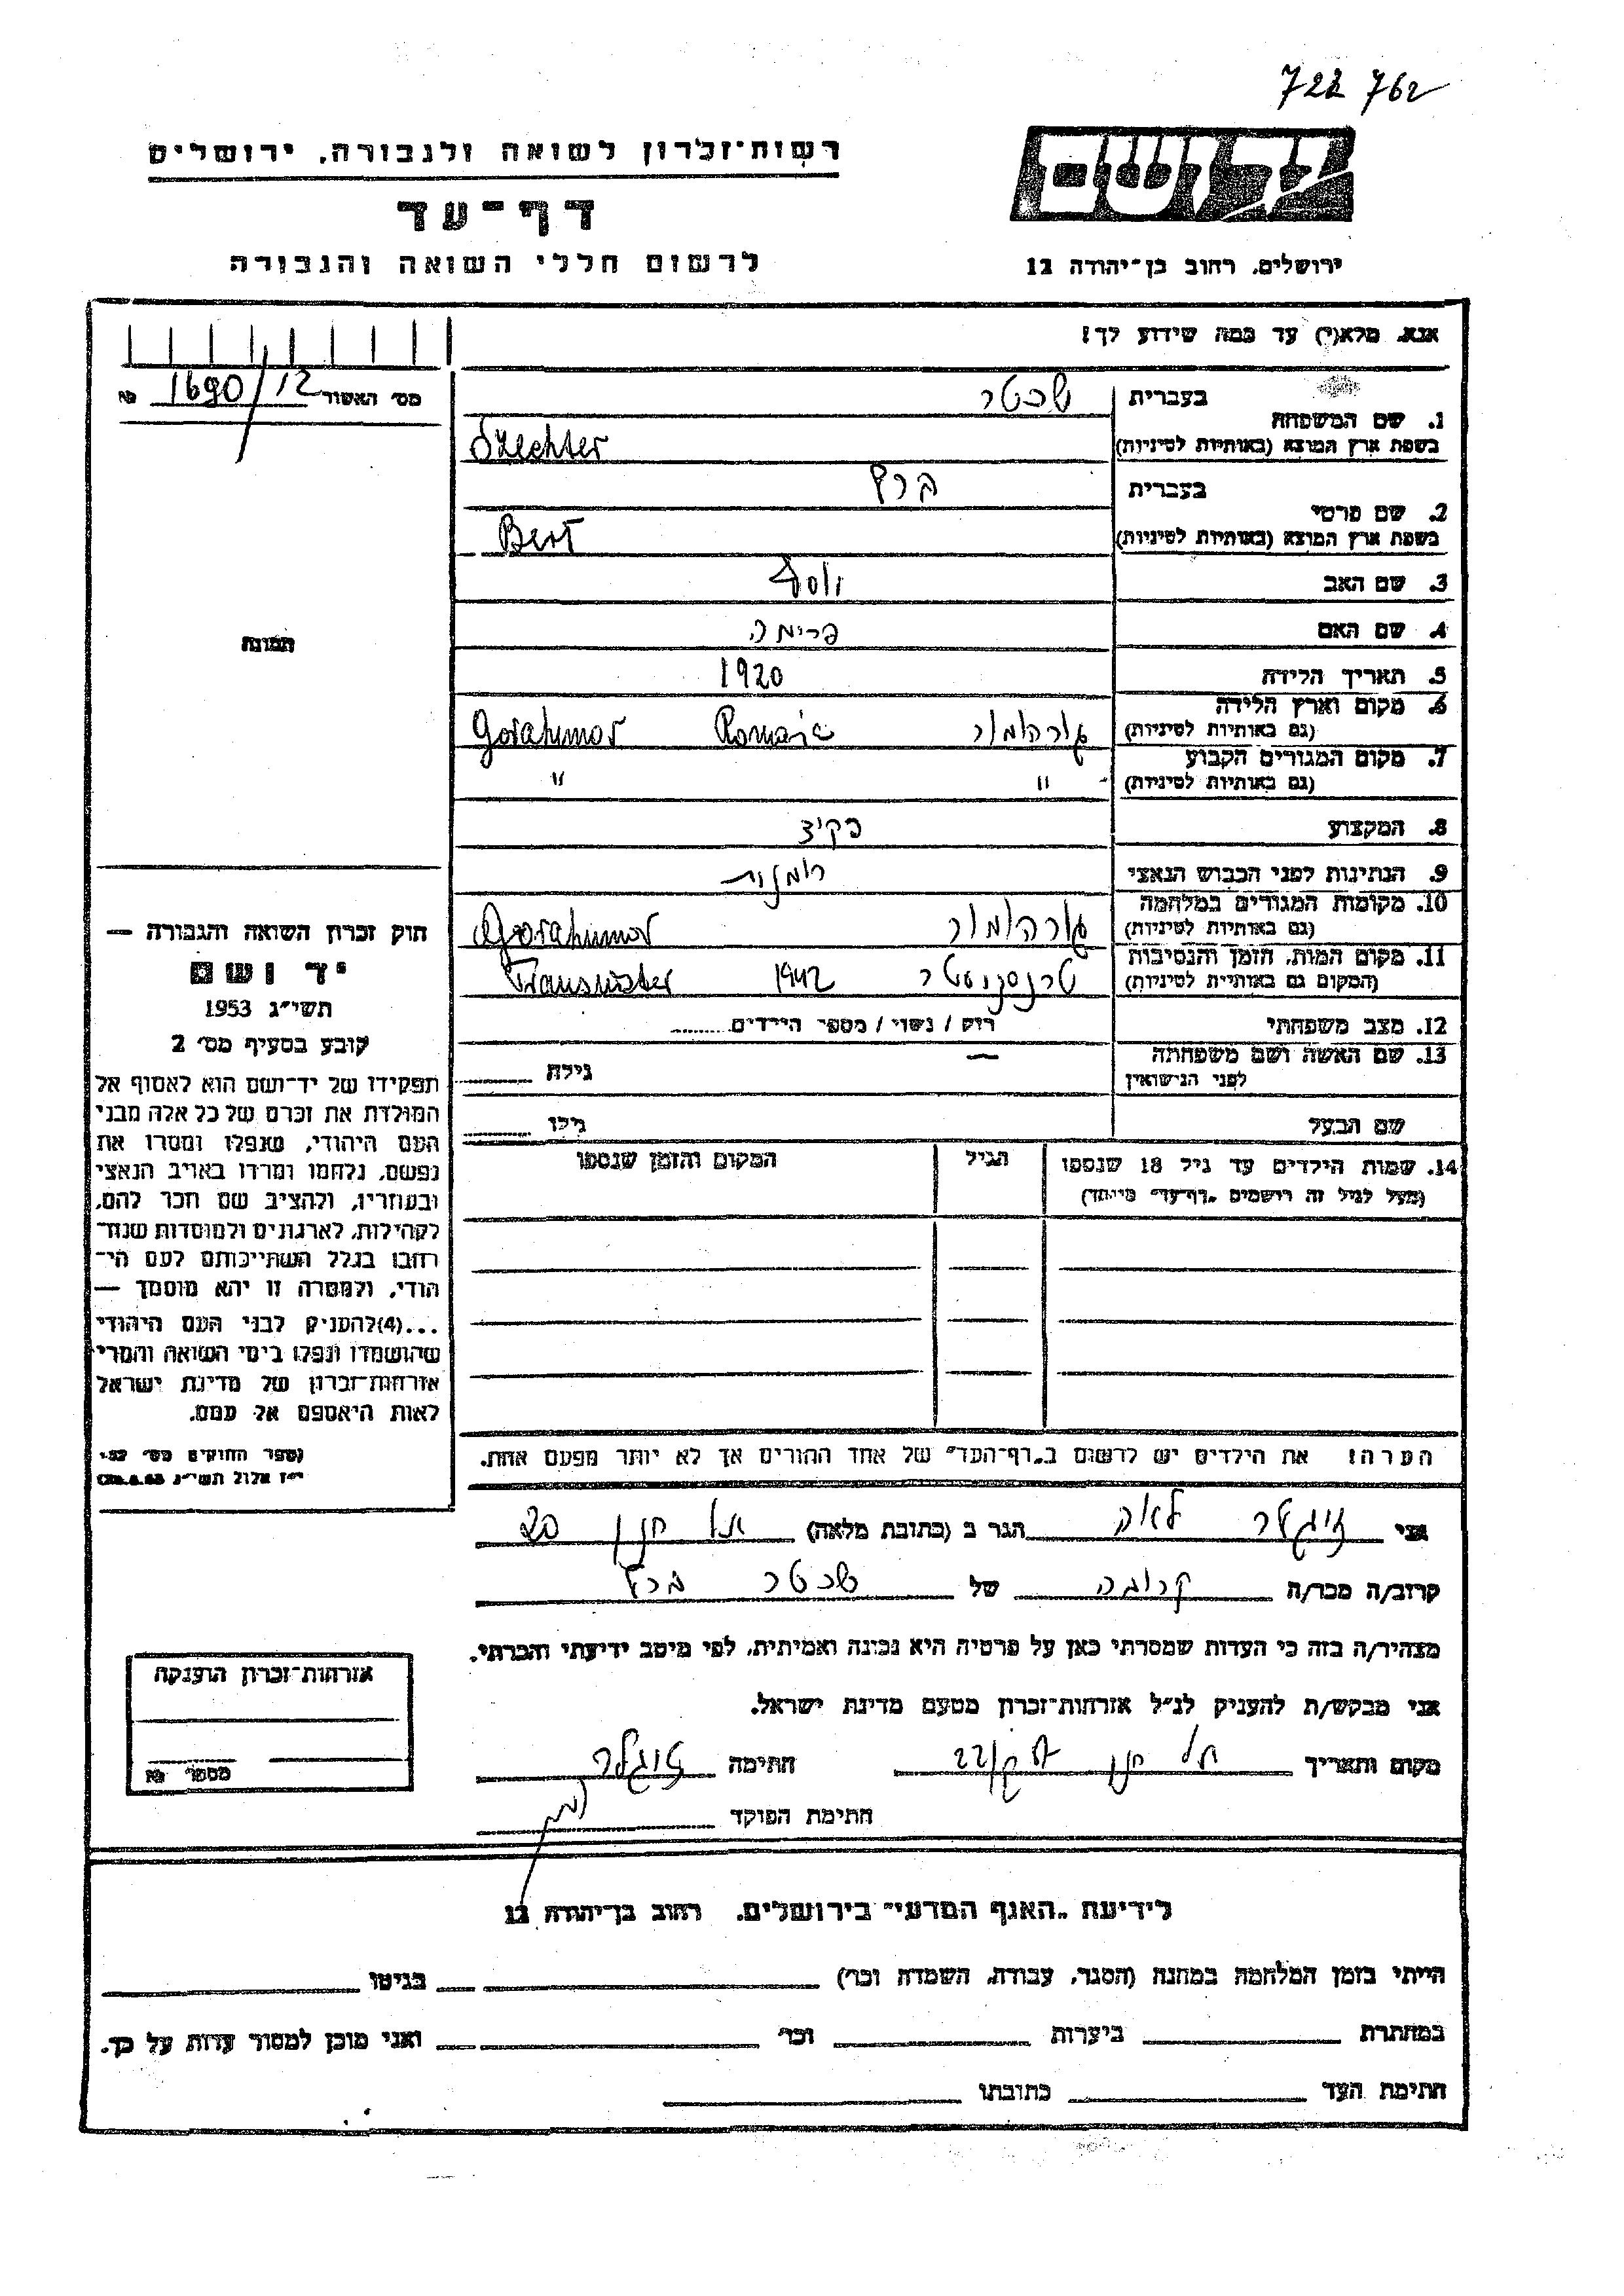 722 762
רשות־זכרון לשואה ולגבורה, ירושלים
דף־עד
לרשום חללי השואה והגבורה
יד ושם
ירושלים, רחוב בן־יהודה 12
אנא, מלא(י) עד כמה שידוע לך!
מס׳ האשור 1690/12 №
1. שם המשפחה בעברית שכטר
בשפת ארץ המוצא (באותיות לטיניות) Szechter
2. שם פרטי בעברית ברל
בשפת ארץ המוצא (באותיות לטיניות) Berl
3. שם האב יוסף
4. שם האם פרימה
5. תאריך הלידה 1920
6. מקום וארץ הלידה (גם באותיות לטיניות) גורהומור Romania Gorahumor
7. מקום המגורים הקבוע (גם באותיות לטיניות) " "
8. המקצוע
9. הנתינות לפני הכבוש הנאצי רומנית
10. מקומות המגורים במלחמה (גם באותיות לטיניות) גורהומור Gorahumor
11. מקום המות, הזמן והנסיבות (המקום גם באותיות לטיניות) טרנסניסטר 1942 Transnister
12. מצב משפחתי רוק / נשוי / מספר הילדים.........
13. שם האשה ושם משפחתה לפני הנישואין — גילה
שם הבעל גילו
14. שמות הילדים עד גיל 18 שנספו הגיל המקום והזמן שנספו
(מעל לגיל זה רושמים „דף־עד״ מיוחד)
הערה: את הילדים יש לרשום ב„דף־העד״ של אחד ההורים אך לא יותר מפעם אחת.
תמונה
חוק זכרון השואה והגבורה —
יד ושם
תשי״ג 1953
קובע בסעיף מס׳ 2
תפקידו של יד־ושם הוא לאסוף אל
המולדת את זכרם של כל אלה מבני
העם היהודי, שנפלו ומסרו את
נפשם, נלחמו ומרדו באויב הנאצי
ובעוזריו, ולהציב שם וזכר להם,
לקהילות, לארגונים ולמוסדות שנח־
רבו בגלל השתייכותם לעם הי־
הודי, ולמטרה זו יהא מוסמך —
...(4) להעניק לבני העם היהודי
שהושמדו ונפלו בימי השואה והמרי
אזרחות־זכרון של מדינת ישראל
לאות היאספם אל עמם.
(ספר החוקים מס׳ 132,
י״ז אלול תשי״ג 28.8.53)
אני זיגלר לאה הגר ב (כתובת מלאה) תל חנן 20
קרוב/ה מכר/ה קרובה של שכטר ברל
מצהיר/ה בזה כי העדות שמסרתי כאן על פרטיה היא נכונה ואמיתית, לפי מיטב ידיעתי והכרתי.
אני מבקש/ת להעניק לנ״ל אזרחות־זכרון מטעם מדינת ישראל.
מקום ותאריך תל חנן חתימה זיגלר
חתימת הפוקד
אזרחות־זכרון הוענקה
מספר №
לידיעת „האגף המדעי״ בירושלים, רחוב בן־יהודה 12
הייתי בזמן המלחמה במחנה (הסגר, עבודת, השמדה וכו׳) בגיטו
במחתרת ביערות וכו׳ ואני מוכן למסור עדות על כך.
חתימת העד כתובתו